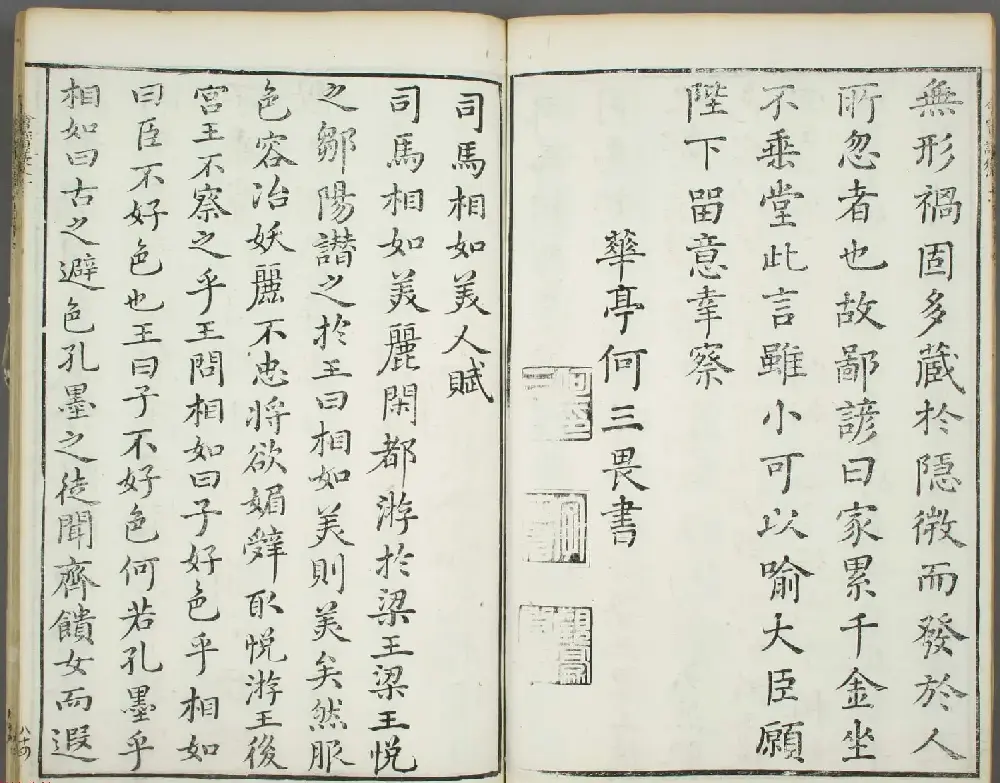 無形禍固多藏於隱微而發於人
所忽者也故鄙諺曰家累千金坐
不垂堂此言雖小可以喻大臣願
陛下留意幸察
華亭何三畏書
司馬相如美人賦
司馬相如美麗閑都游於梁王梁王悅
之鄒陽譖之於王曰相如美則美矣然服
色容冶妖麗不忠將欲媚辭取悅游王後
宮王不察之乎王問相如曰子好色乎相如
曰臣不好色也王曰子不好色何若孔墨乎
相如曰古之避色孔墨之徒聞齊饋女而遐